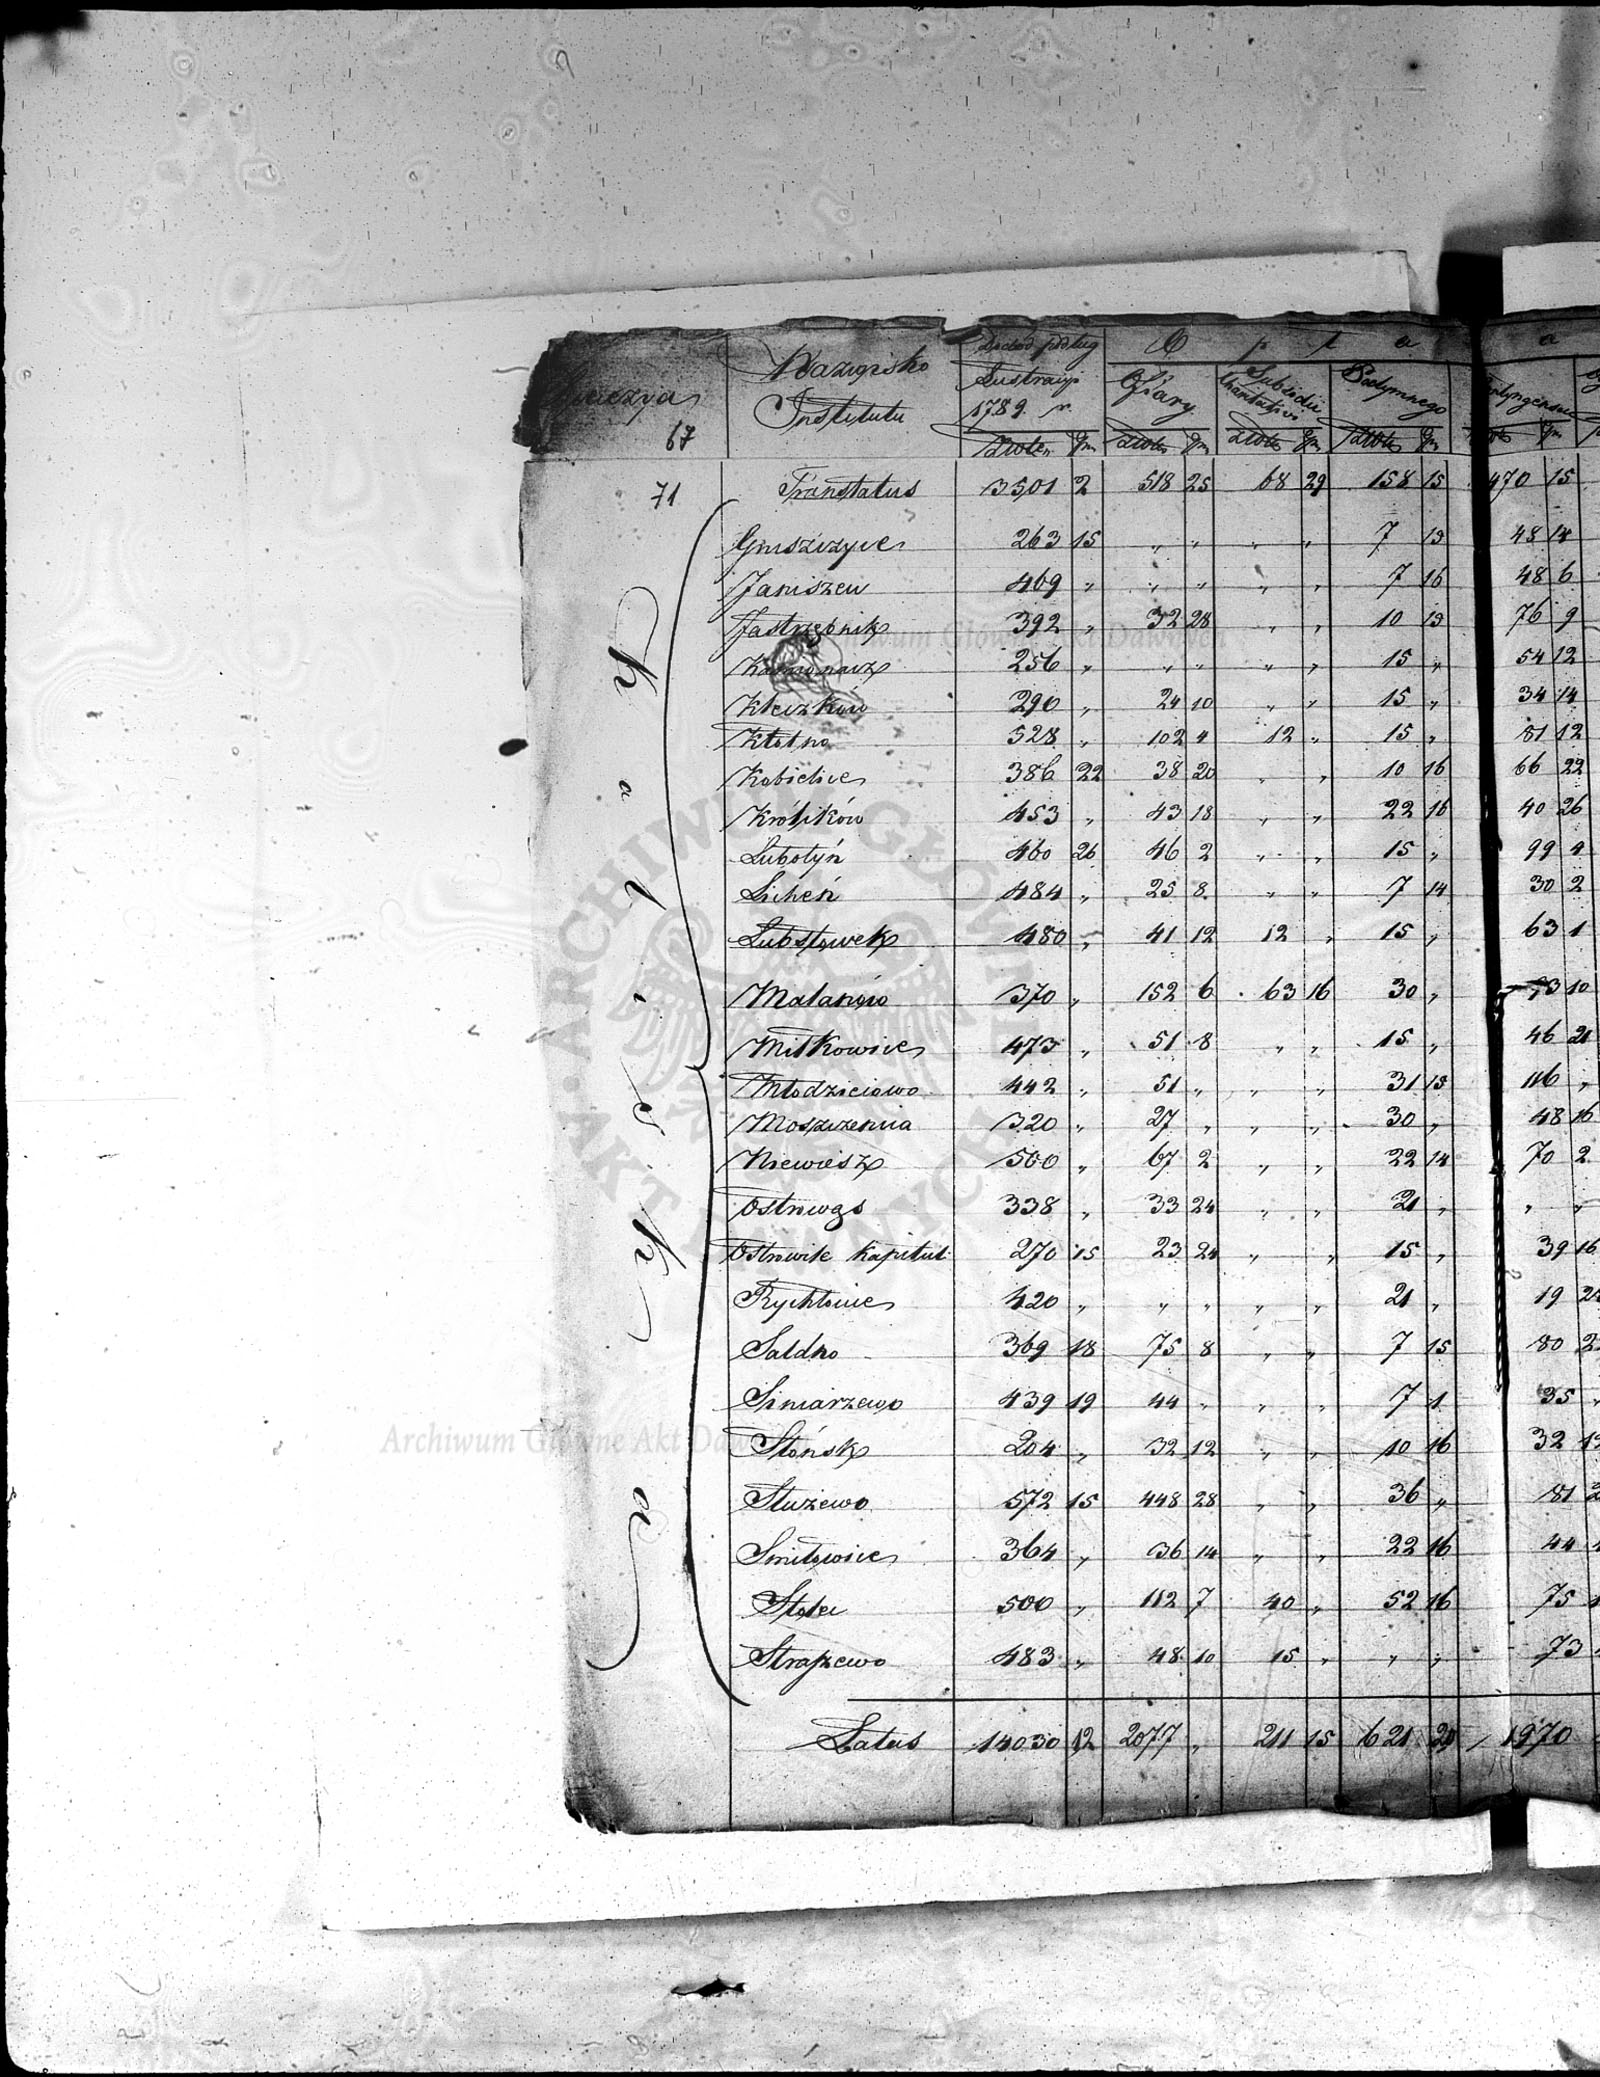 Nazwisko Instytutu
Dochod podług Lustracyi 1789. r.
O p ł a
Ofiary
Subsidii Charitativi
Podymnego
a
Złote gr. Złote gr. Złote gr. Złote gr. gr.
67
71 Transtatus 3501 2 518 25 68 29 158 15 470 15
Gruszczyce 263 15 " " " " 7 13 48 14
Janiszew 469 " " " " " 7 16 48 6
Jastrzębnik 392 " 32 28 " " 10 13 76 9
256 " " " " " 15 " 54 12
Kleczków 290 " 24 10 " " 15 " 34 14
Kłotno 528 " 102 4 12 " 15 " 81 12
Kobielice 386 22 38 20 " " 10 16 66 22
Królików 453 " 43 18 " " 22 16 40 26
Lubotyń 460 26 46 2 " " 15 " 99 4
Licheń 484 " 25 8 " " 7 14 30 2
Lubstówek 480 " 41 12 12 " 15 " 63 1
Malanów 370 " 152 6 63 16 30 " 73 10
Miłkowice 473 " 51 8 " " 15 " 46 21
Młodzieiowo 442 " 51 " " " 31 15 116 "
Moszczenica 320 " 27 " " " 30 " 48 16
Niewiesz 500 " 67 2 " " 22 14 70 2
Ostrowąs 338 " 33 24 " " 21 " " "
Ostrowite Kapitul 270 15 23 24 " " 15 " 39 16
Rychłocice 420 " " " " " 21 " 19
Sadlno 369 18 75 8 " " 7 15 80
Siniarzewo 439 19 44 " " " 7 1 35
Słońsk 204 " 32 12 " " 10 16 32
Służewo 572 15 448 28 " " 36 " 81
Smiłowice 364 " 36 14 " " 22 16 44
500 " 112 7 40 " 52 16 75
Straszewo 483 " 48 10 15 " " " 73
K a l i s k a
Latus 14030 12 2077 " 211 15 621 29 1970
Archiwum Główne Akt Dawnych
ARCHIWUM GŁÓWNE AKT DAWNYCH
Archiwum Główne Akt Dawnych